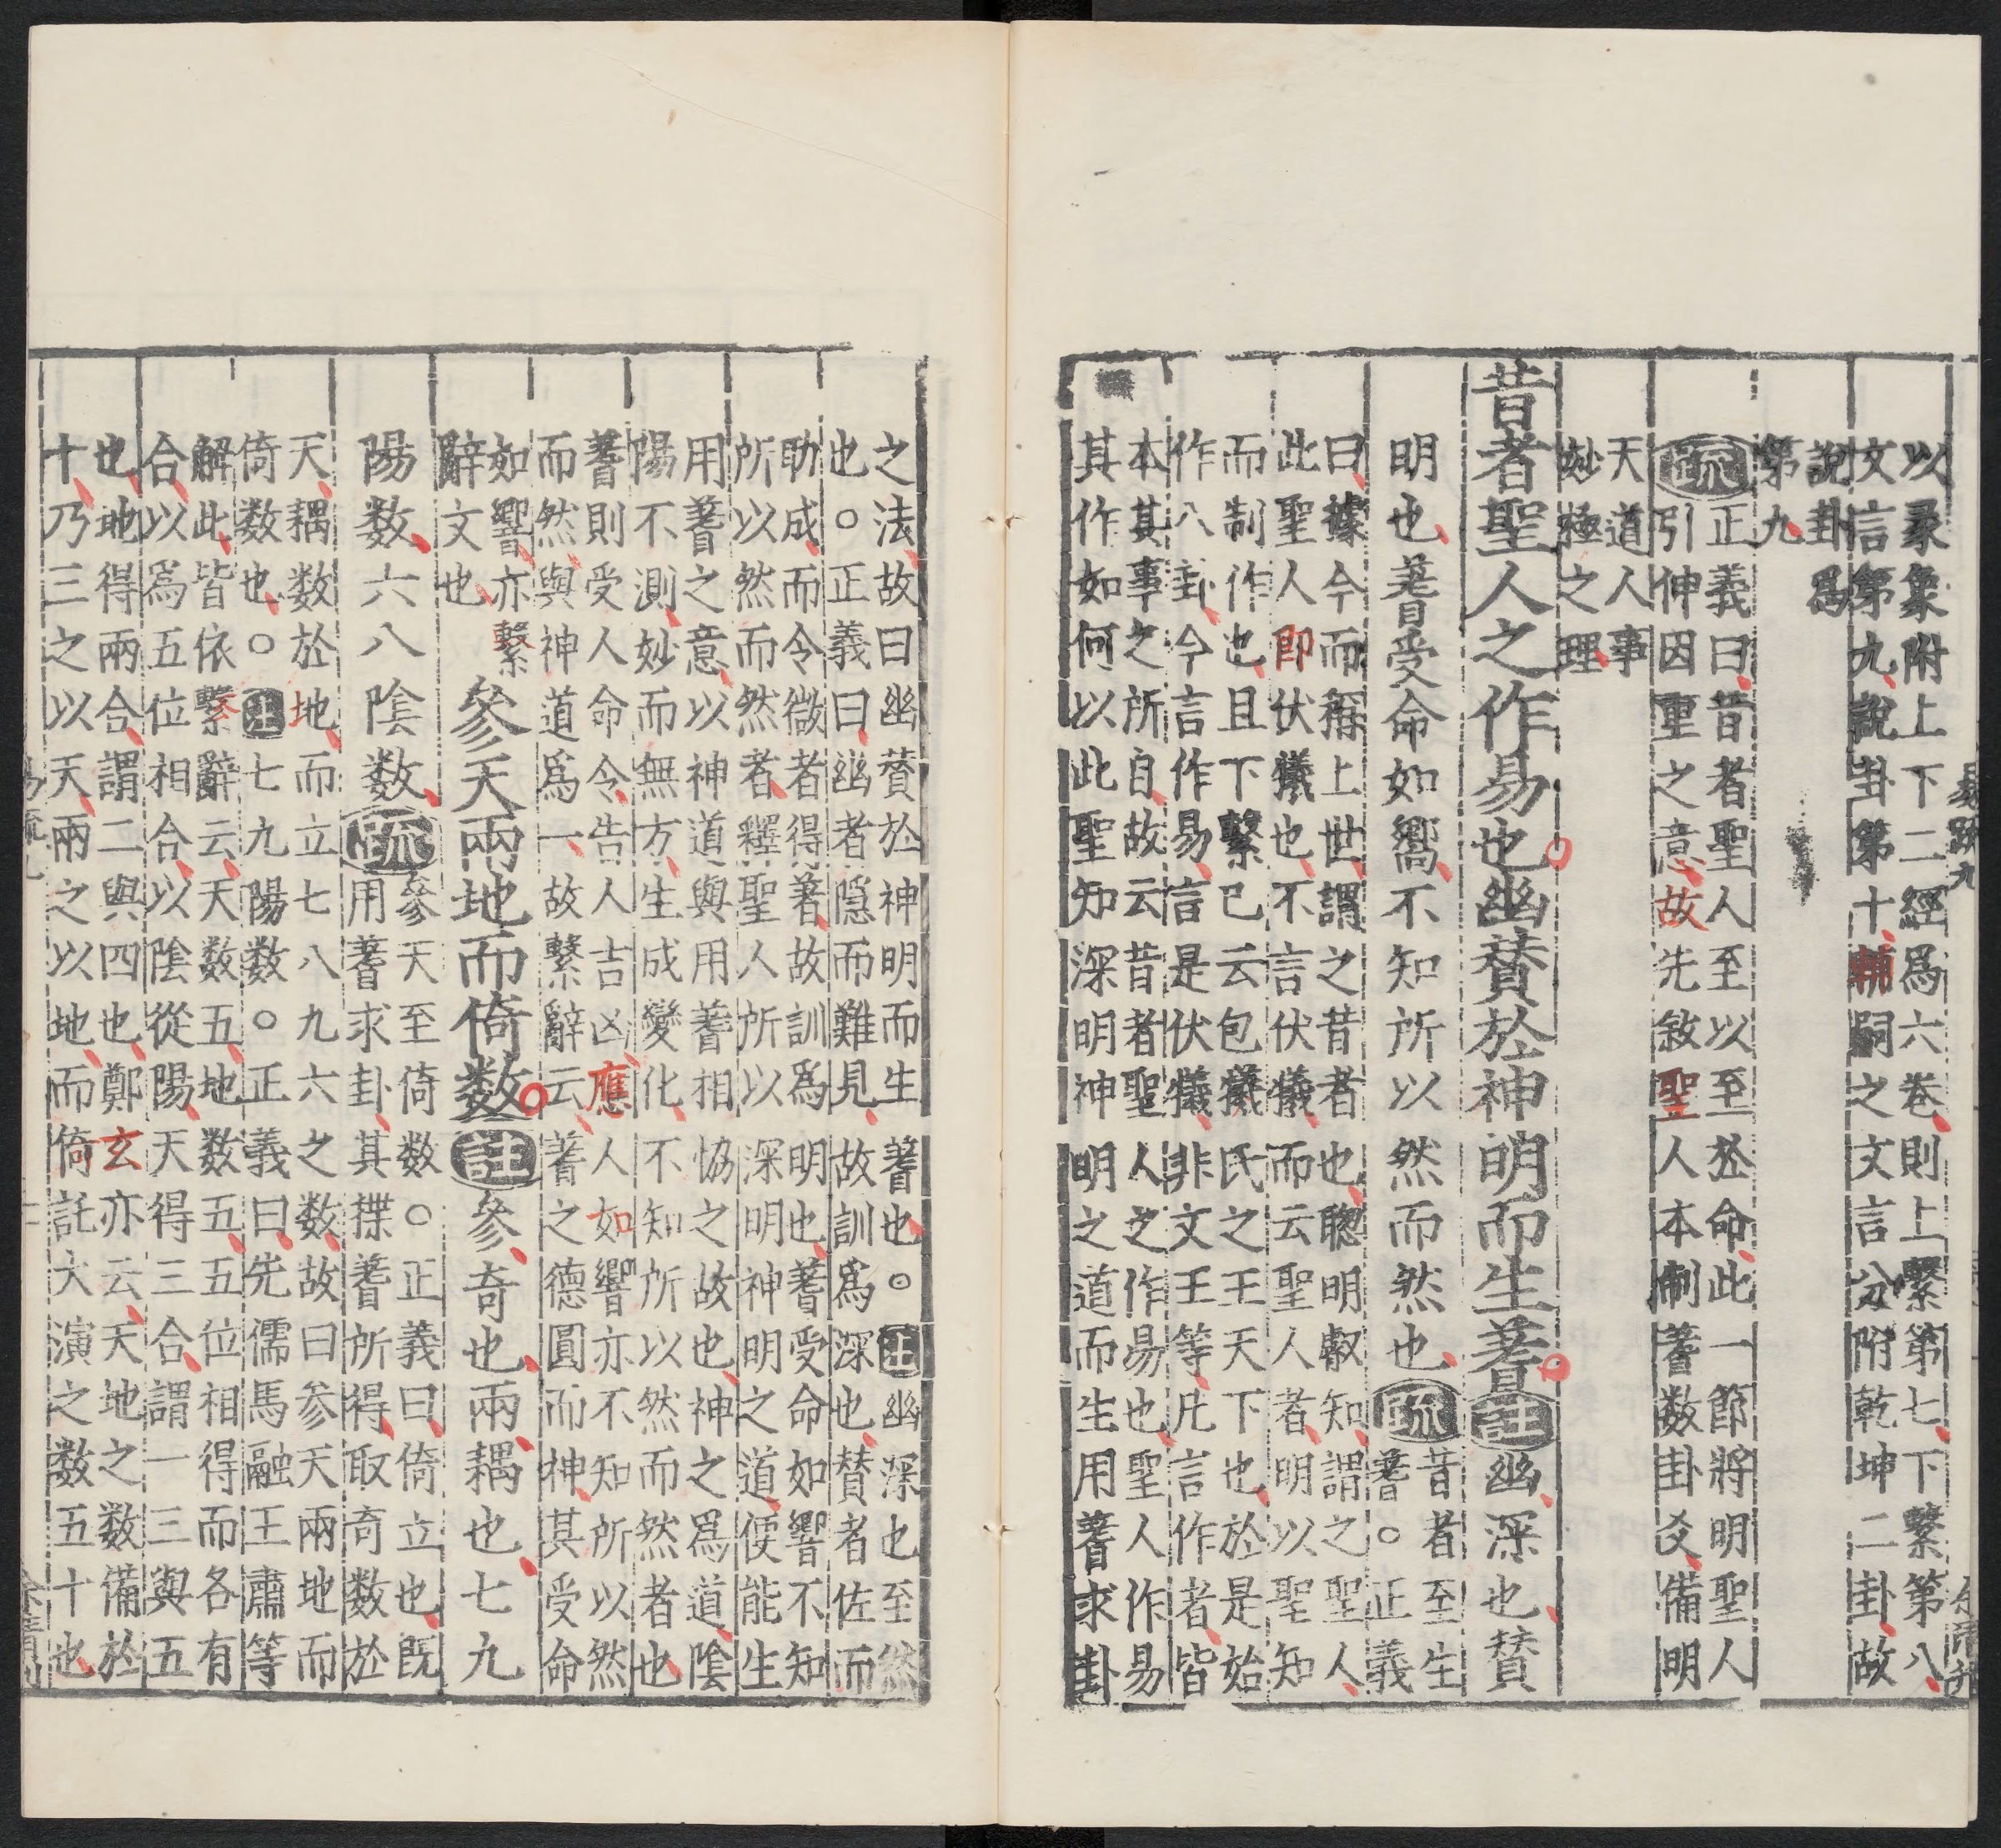 以彖象附上下二經爲六卷則上繫第七下繫第八
文言第九說卦第十輔嗣之文言分附乾坤二卦故
說卦爲
第九
疏正義曰昔者聖人至以至於命此一節將明聖人
引伸因重之意故先敘聖人本制蓍数卦爻備明
天道人事
妙極之理
昔者聖人之作易也幽賛於神明而生蓍註幽深也賛
明也蓍受命如嚮不知所以然而然也疏昔者至生
蓍○正義
曰據今而稱上世謂之昔者也聦明叡知謂之聖人
此聖人即伏犠也不言伏犠而云聖人者明以聖知
而制作也且下繫已云包犠氏之王天下也於是始
作八卦今言作易言是伏犠非文王等凡言作者皆
本其事之所自故云昔者聖人之作易也聖人作易
其作如何以此聖知深明神明之道而生用蓍求卦
之法故曰幽賛於神明而生蓍也○註幽深也至然
也○正義曰幽者隱而難見故訓爲深也賛者佐而
助成而令微者得著故訓爲明也蓍受命如響不知
所以然而然者釋聖人所以深明神明之道便能生
用蓍之意以神道與用蓍相恊之故也神之爲道陰
陽不測妙而無方生成變化不知所以然而然者也
蓍則受人命令告人吉凶應人如響亦不知所以然
而然與神道爲一故繫辭云蓍之德圓而神其受命
如響亦繫
辭文也
參天兩地而倚数註參奇也兩耦也七九
陽数六八陰数疏參天至倚数○正義曰倚立也既
用蓍求卦其揲蓍所得取奇数於
天耦数於地而立七八九六之数故曰参天兩地而
倚数也○註七九陽数○正義曰先儒馬融王肅等
解此皆依繫辭云天数五地数五五位相得而各有
合以爲五位相合以陰從陽天得三合謂一三與五
也地得兩合謂二與四也鄭玄亦云天地之数備於
十乃三之以天兩之以地而倚託大演之数五十也